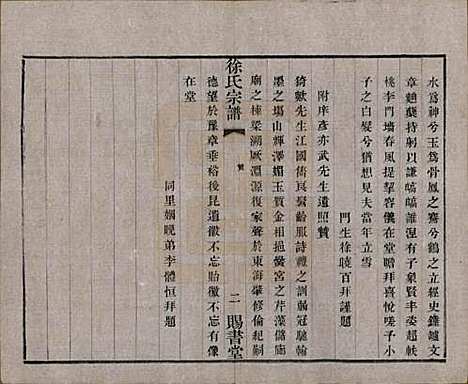 水為神兮玉為骨鳳之騫兮鶴之立經史鑪文
章麯蘖持躬以謙嗃嗃誰涅有子象賢丰姿趨軼
桃李門墻春風提挈容儀在堂瞻拜喜悅嗟予小
子之白髮兮猶想見夫當年立雪
門生徐曉百拜謹題
附序彥亦武先生遺照贊
猗歟先生江國儁民髫齡服詩禮之訓弱冠馳翰
墨之場山輝澤媚玉質金相挹黌宮之芹藻儲廊
廟之棟梁溯厥淵源復家聲於東海肇修倫紀嗣
德望於豫章垂裕後昆遺徽不忘貽徽不忘有儼
在堂
同里姻晚弟李體恒拜題
徐氏宗譜
贊
二
賜書堂